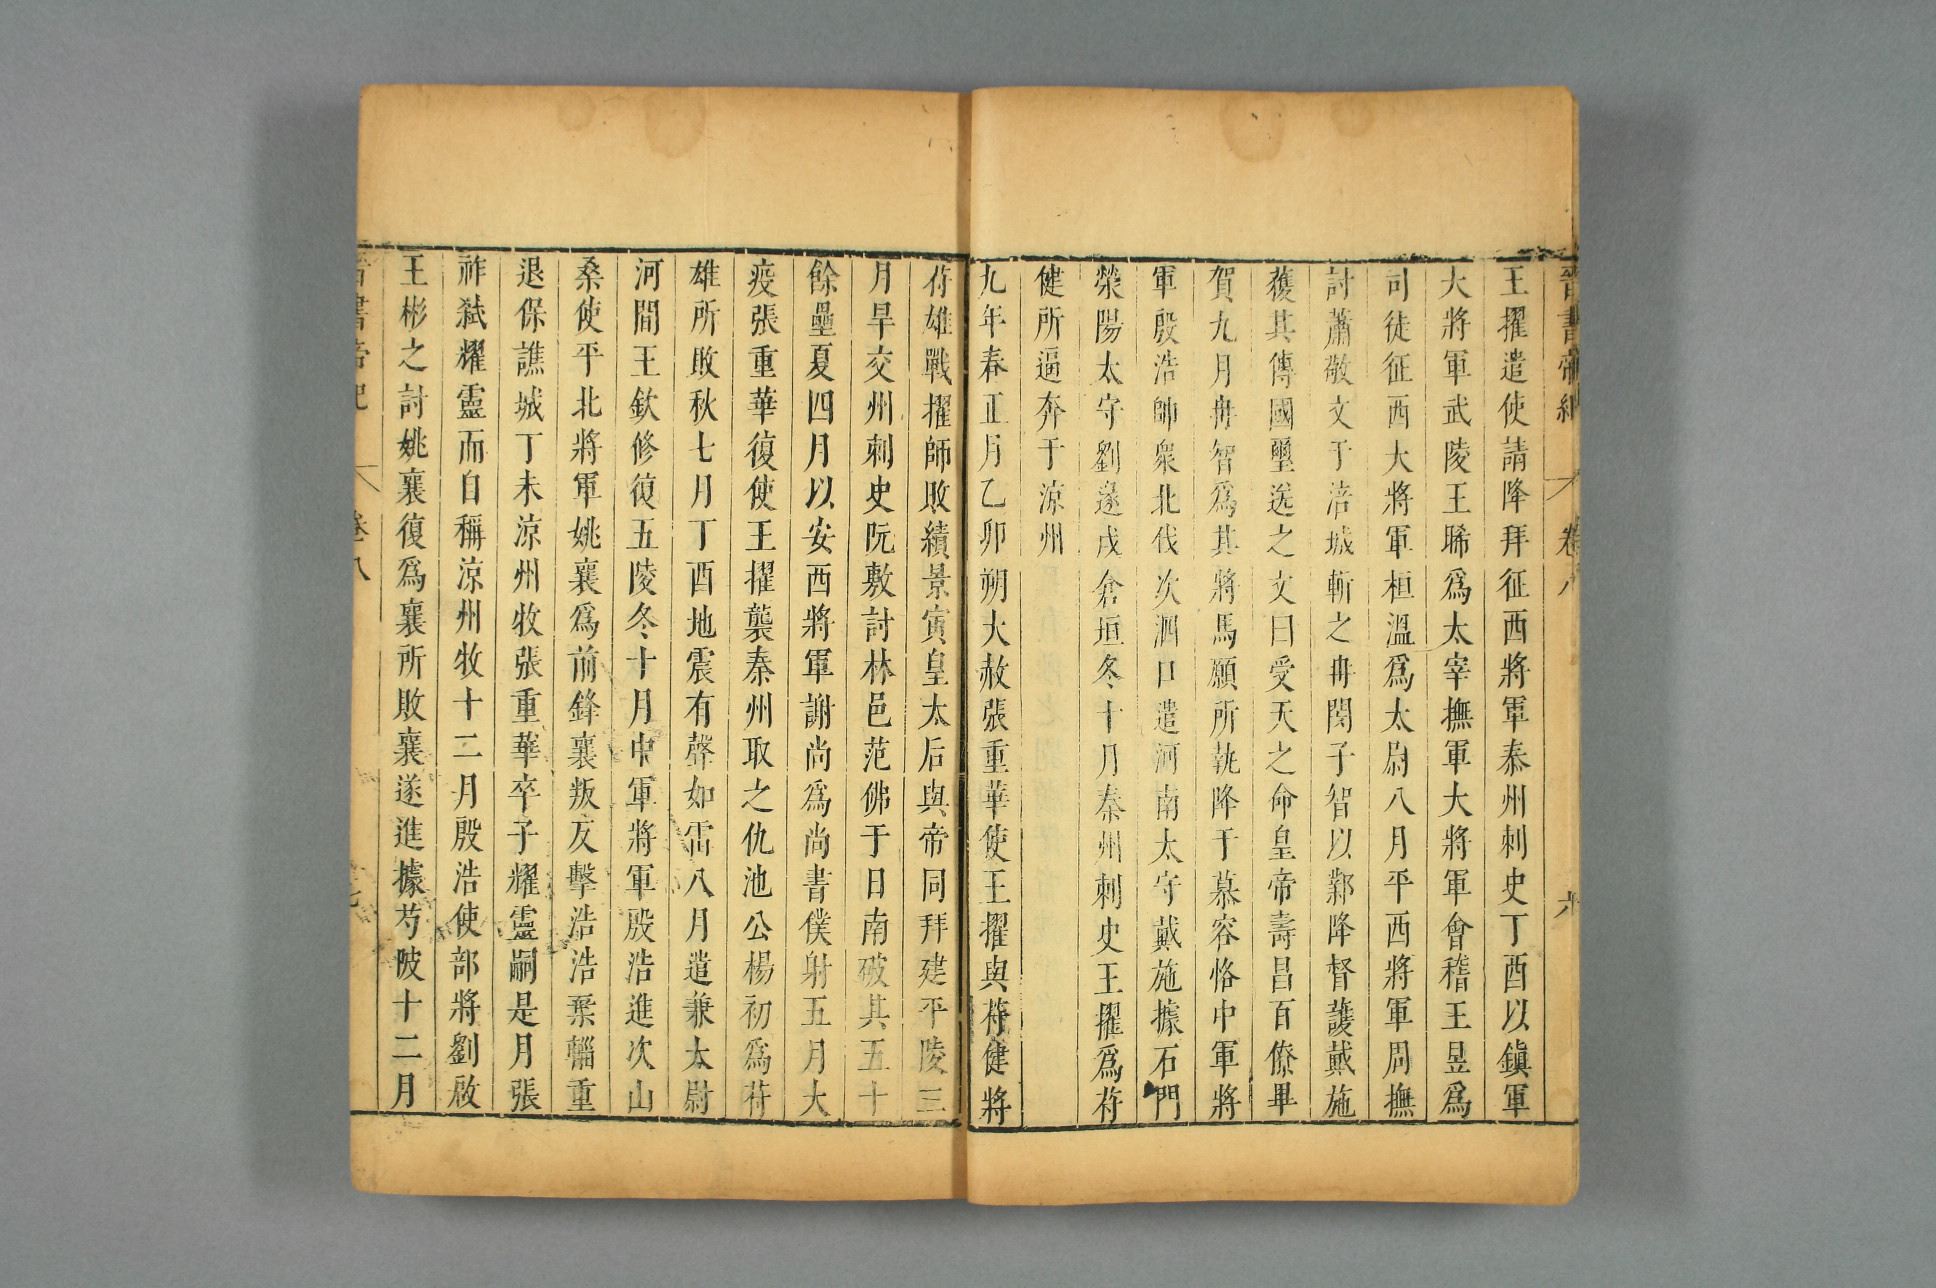 晉書帝紀 卷八 六
王擢遣使請降拜征西將軍秦州刺史丁酉以鎮軍
大將軍武陵王晞爲太宰撫軍大將軍會稽王昱爲
司徒征西大將軍桓溫爲太尉八月平西將軍周撫
討蕭敬文于涪城斬之冉閔子智以鄴降督護戴施
獲其傳國璽送之文曰受天之命皇帝壽昌百僚畢
賀九月冉智爲其將馬願所執降于慕容恪中軍將
軍殷浩帥衆北伐次泗口遣河南太守戴施據石門
滎陽太守劉遂戍倉垣冬十月秦州刺史王擢爲苻
健所逼奔于涼州
九年春正月乙卯朔大赦張重華使王擢與苻健將
苻雄戰擢師敗績景寅皇太后與帝同拜建平陵三
月旱交州刺史阮敷討林邑范佛于日南破其五十
餘壘夏四月以安西將軍謝尚爲尚書僕射五月大
疫張重華復使王擢襲秦州取之仇池公楊初爲苻
雄所敗秋七月丁酉地震有聲如雷八月遣兼太尉
河間王欽修復五陵冬十月中軍將軍殷浩進次山
桑使平北將軍姚襄爲前鋒襄叛反擊浩浩棄輜重
退保譙城丁未涼州牧張重華卒子耀靈嗣是月張
祚弑耀靈而自稱涼州牧十二月殷浩使部將劉啟
王彬之討姚襄復爲襄所敗襄遂進據芍陂十二月
晉書帝紀 卷八 七